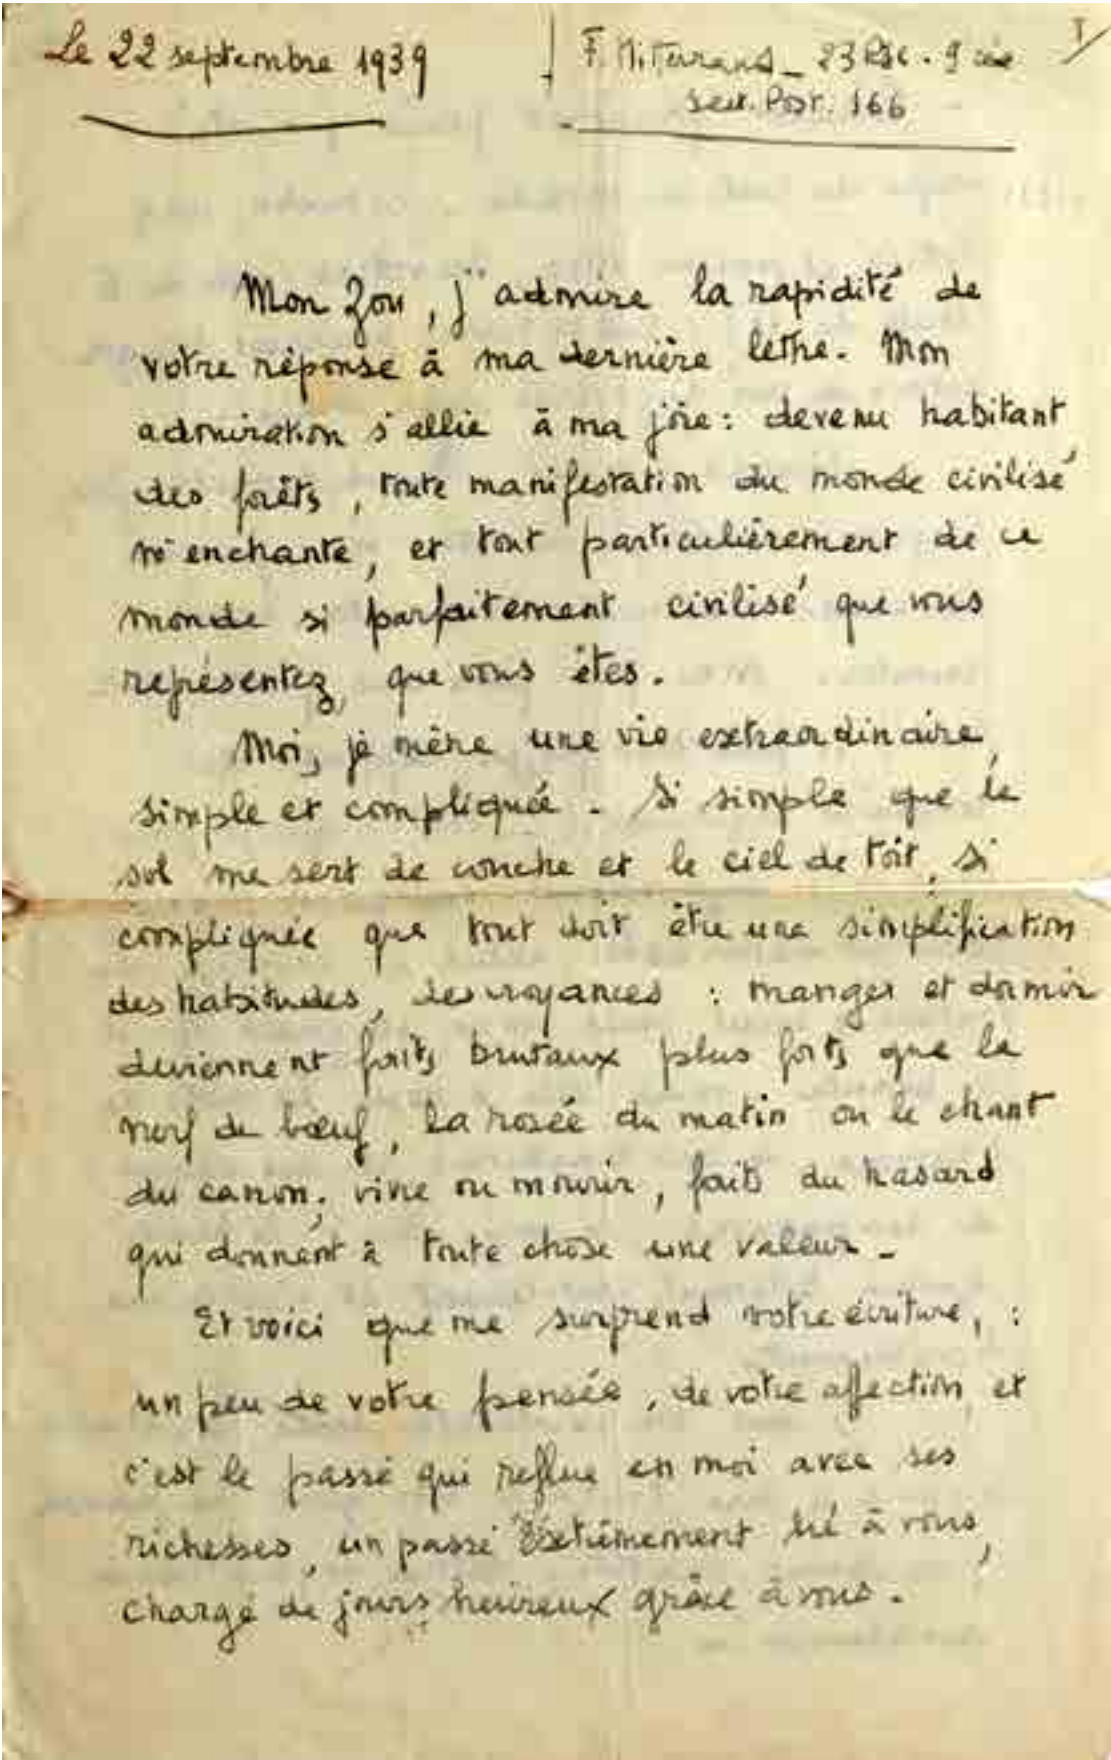 Le 22 septembre 1939
F. Mitterrand _ 23 RIC. 9 cie
Sect. Post. 166
I/
Mon Zou, j'admire la rapidité de
votre réponse à ma dernière lettre. Mon
admiration s'allie à ma joie : devenu habitant
des forêts, toute manifestation du monde civilisé
m'enchante, et tout particulièrement de ce
monde si parfaitement civilisé que vous
représentez, que vous êtes.
Moi, je mène une vie extraordinaire,
simple et compliquée. Si simple que le
sol me sert de couche et le ciel de toit, si
compliquée que tout doit être une simplification
des habitudes, des croyances : manger et dormir
deviennent faits brutaux plus forts que le
nerf de bœuf, la rosée du matin ou le chant
du canon ; vivre ou mourir, faits du hasard
qui donnent à toute chose une valeur _
Et voici que me surprend votre écriture, :
un peu de votre pensée, de votre affection, et
c'est le passé qui reflue en moi avec ses
richesses, un passé extrêmement lié à vous,
chargé de jours heureux grâce à vous.